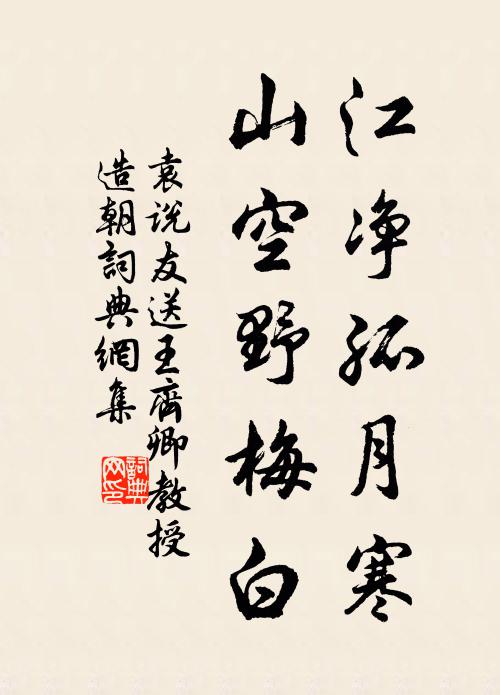 江净孤月寒
山空野梅白
袁说友送王齊卿教授
造朝詞典網集
詞典
网印